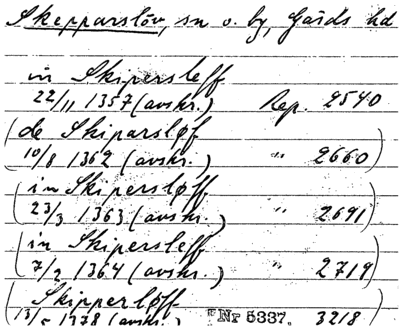 Skepparslöv, sn o. by, Gärds hd
in Skipersleff
22/11 1357 (avskr.) Rep. 2540
(de Skiparsløf
10/8 1362 (avskr.) " 2660)
(in Skipersløff
23/3 1363 (avskr.) " 2691)
(in Skipersleff
7/2 1364 (avskr.) " 2719)
(Skipperløff
13/ 1378 (avskr.) Nr 5337. 3218)